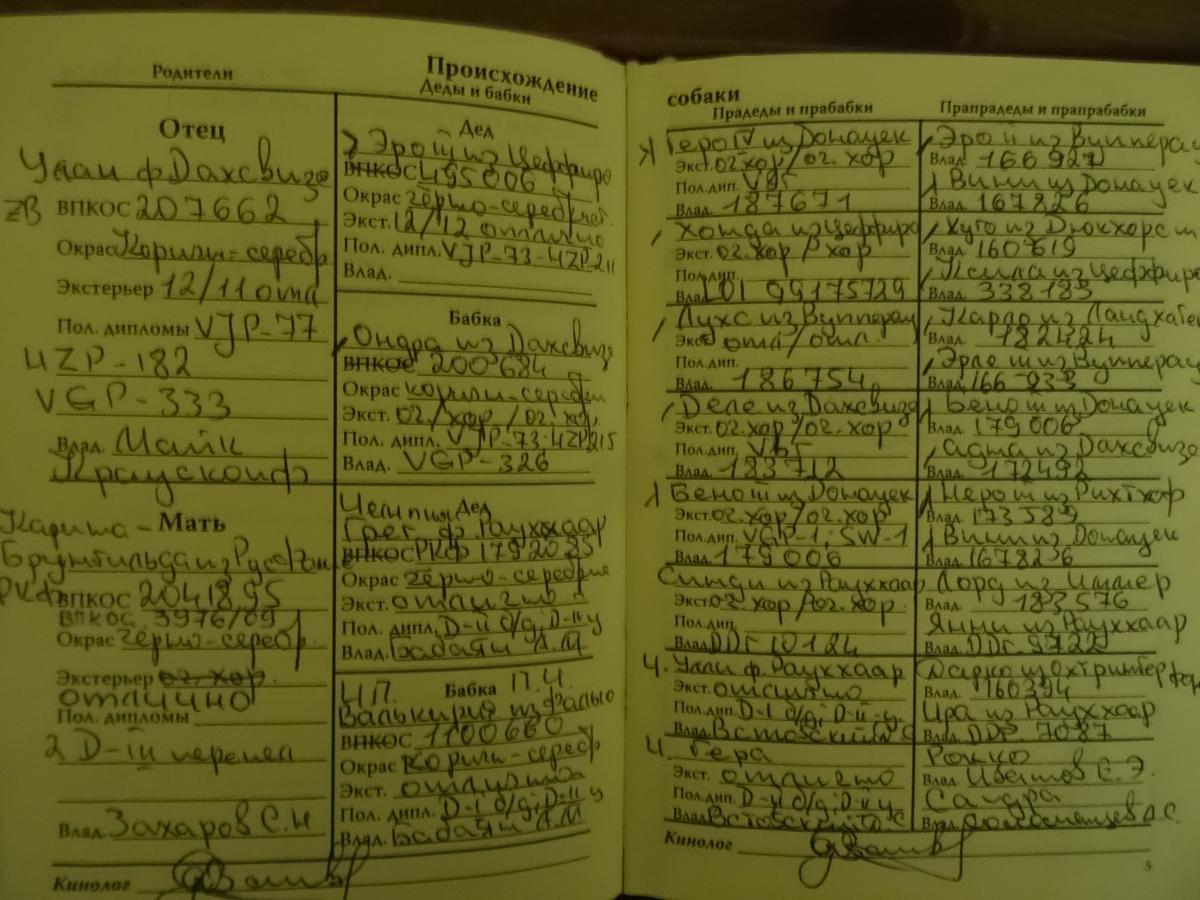 Родители
Происхождение
Деды и бабки
Отец
Улан ф Дахсвизе
ZB ВПКОС 207662
Окрас Коричн-серебр
Экстерьер 12/11 отл
Пол. дипломы VJP-77
HZP-182
VGP-333
Влад. Майк
Краускопф
Мать
Карина -
Брунгильда из
РКФ ВПКОС 2041895
ВПКОС 3976/09
Окрас чёрно-серебр.
Экстерьер оч. хор.
отлично
Пол. дипломы
2 D-III перепел
Влад. Захаров С.Н
Кинолог
Дед
Эро II из Цеффире
ВПКОС 495006
Окрас чёрно-серебр
Экст. 12/12 отлично
Пол. дипл. VJP-73-HZP-211
Влад.
Бабка
Ондра из Дахсвизе
ВПКОС 200684
Окрас коричн-серебр
Экст. оч./хор/оч. хор.
Пол. дипл. VJP-73-HZP215
Влад. VGP-326
Чемпион Дед
Грег ф. Рауххаар
ВПКОС РКФ
Окрас чёрно-серебр
Экст. отлично
Пол. дипл. D-II б/д; D-II у
Влад. Бабаян А.М
Ч.П. Бабка П.Ч.
Валькирия из
ВПКОС 1100660
Окрас Коричн-сереб
Экст. отлично
Пол. дипл. D-I б/д; D-II у
Влад. Бабаян А.М
собаки
Прадеды и прабабки
Геро IV из Донауек
Экст. оч хор/оч. хор
Пол. дип. VB5
Влад. 187671
Хонда из Цеффире
Экст. оч. хор/хор
Пол. дип.
Влад. LOI 99175729
Лухс из Вуппера
Экст. отл/отл.
Пол. дип.
Влад. 186754
Деле из Дахсвизе
Экст. оч. хор/оч. хор
Пол. дип. VB5
Влад. 183712
Бено III из Донауек
Экст. оч. хор/оч. хор
Пол. дип. VGP-1; SW-1
Влад. 179006
Синди из Рауххаар
Экст. оч. хор/оч. хор.
Пол. дип.
Влад. DDR 10124
Ч. Улли ф. Рауххаар
Экст. отлично
Пол. дип. D-I б/д; D-II-у.
Влад. Встовский
Ч. Гера
Экст. отлично
Пол. дип. D-II б/д; D-II у
Влад. Встовский
Кинолог
Прапрадеды и прапрабабки
Эро II из Вуппера
Влад. 166927
Вини из Донауек
Влад. 167826
Хуго из Дюкхорст
Влад. 160619
Ксила из Цеффире
Влад. 338183
Карло из
Влад. 182424
Эрле III из Вуппера
Влад. 166933
Бено III Донауек
Влад. 179006
Адма из Дахсвизе
Влад. 172492
Неро III из Рихтхоф
Влад. 173589
Вини из Донауек
Влад. 1678236
Лорд из Иммер
Влад. 183576
Янни из Рауххаар
Влад. DDR 9722
Дарко из
Влад. 160394
Ира из Рауххаар
Влад. DDR 7087
Рокко
Влад. С.Э.
Сандра
Влад.
5